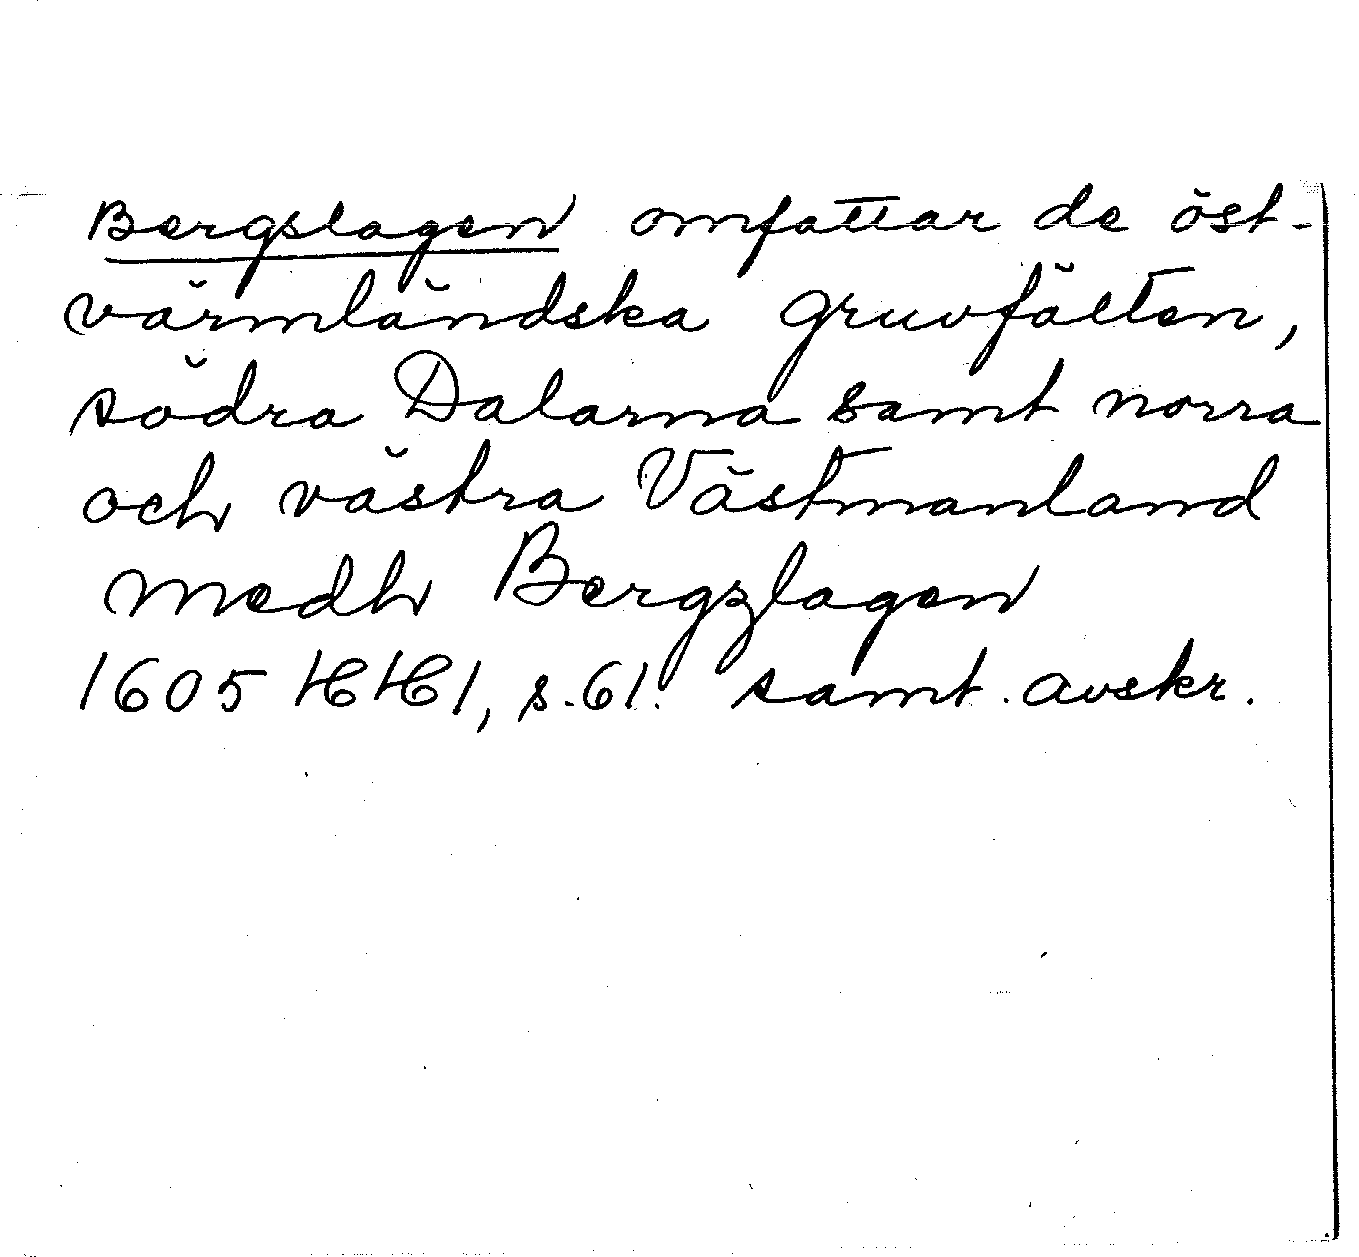 Bergslagen omfattar de öst-
värmländska gruvfälten,
södra Dalarna samt norra
och västra Västmanland
medh Bergzlagen
1605 HH1, s. 61. samt avskr.